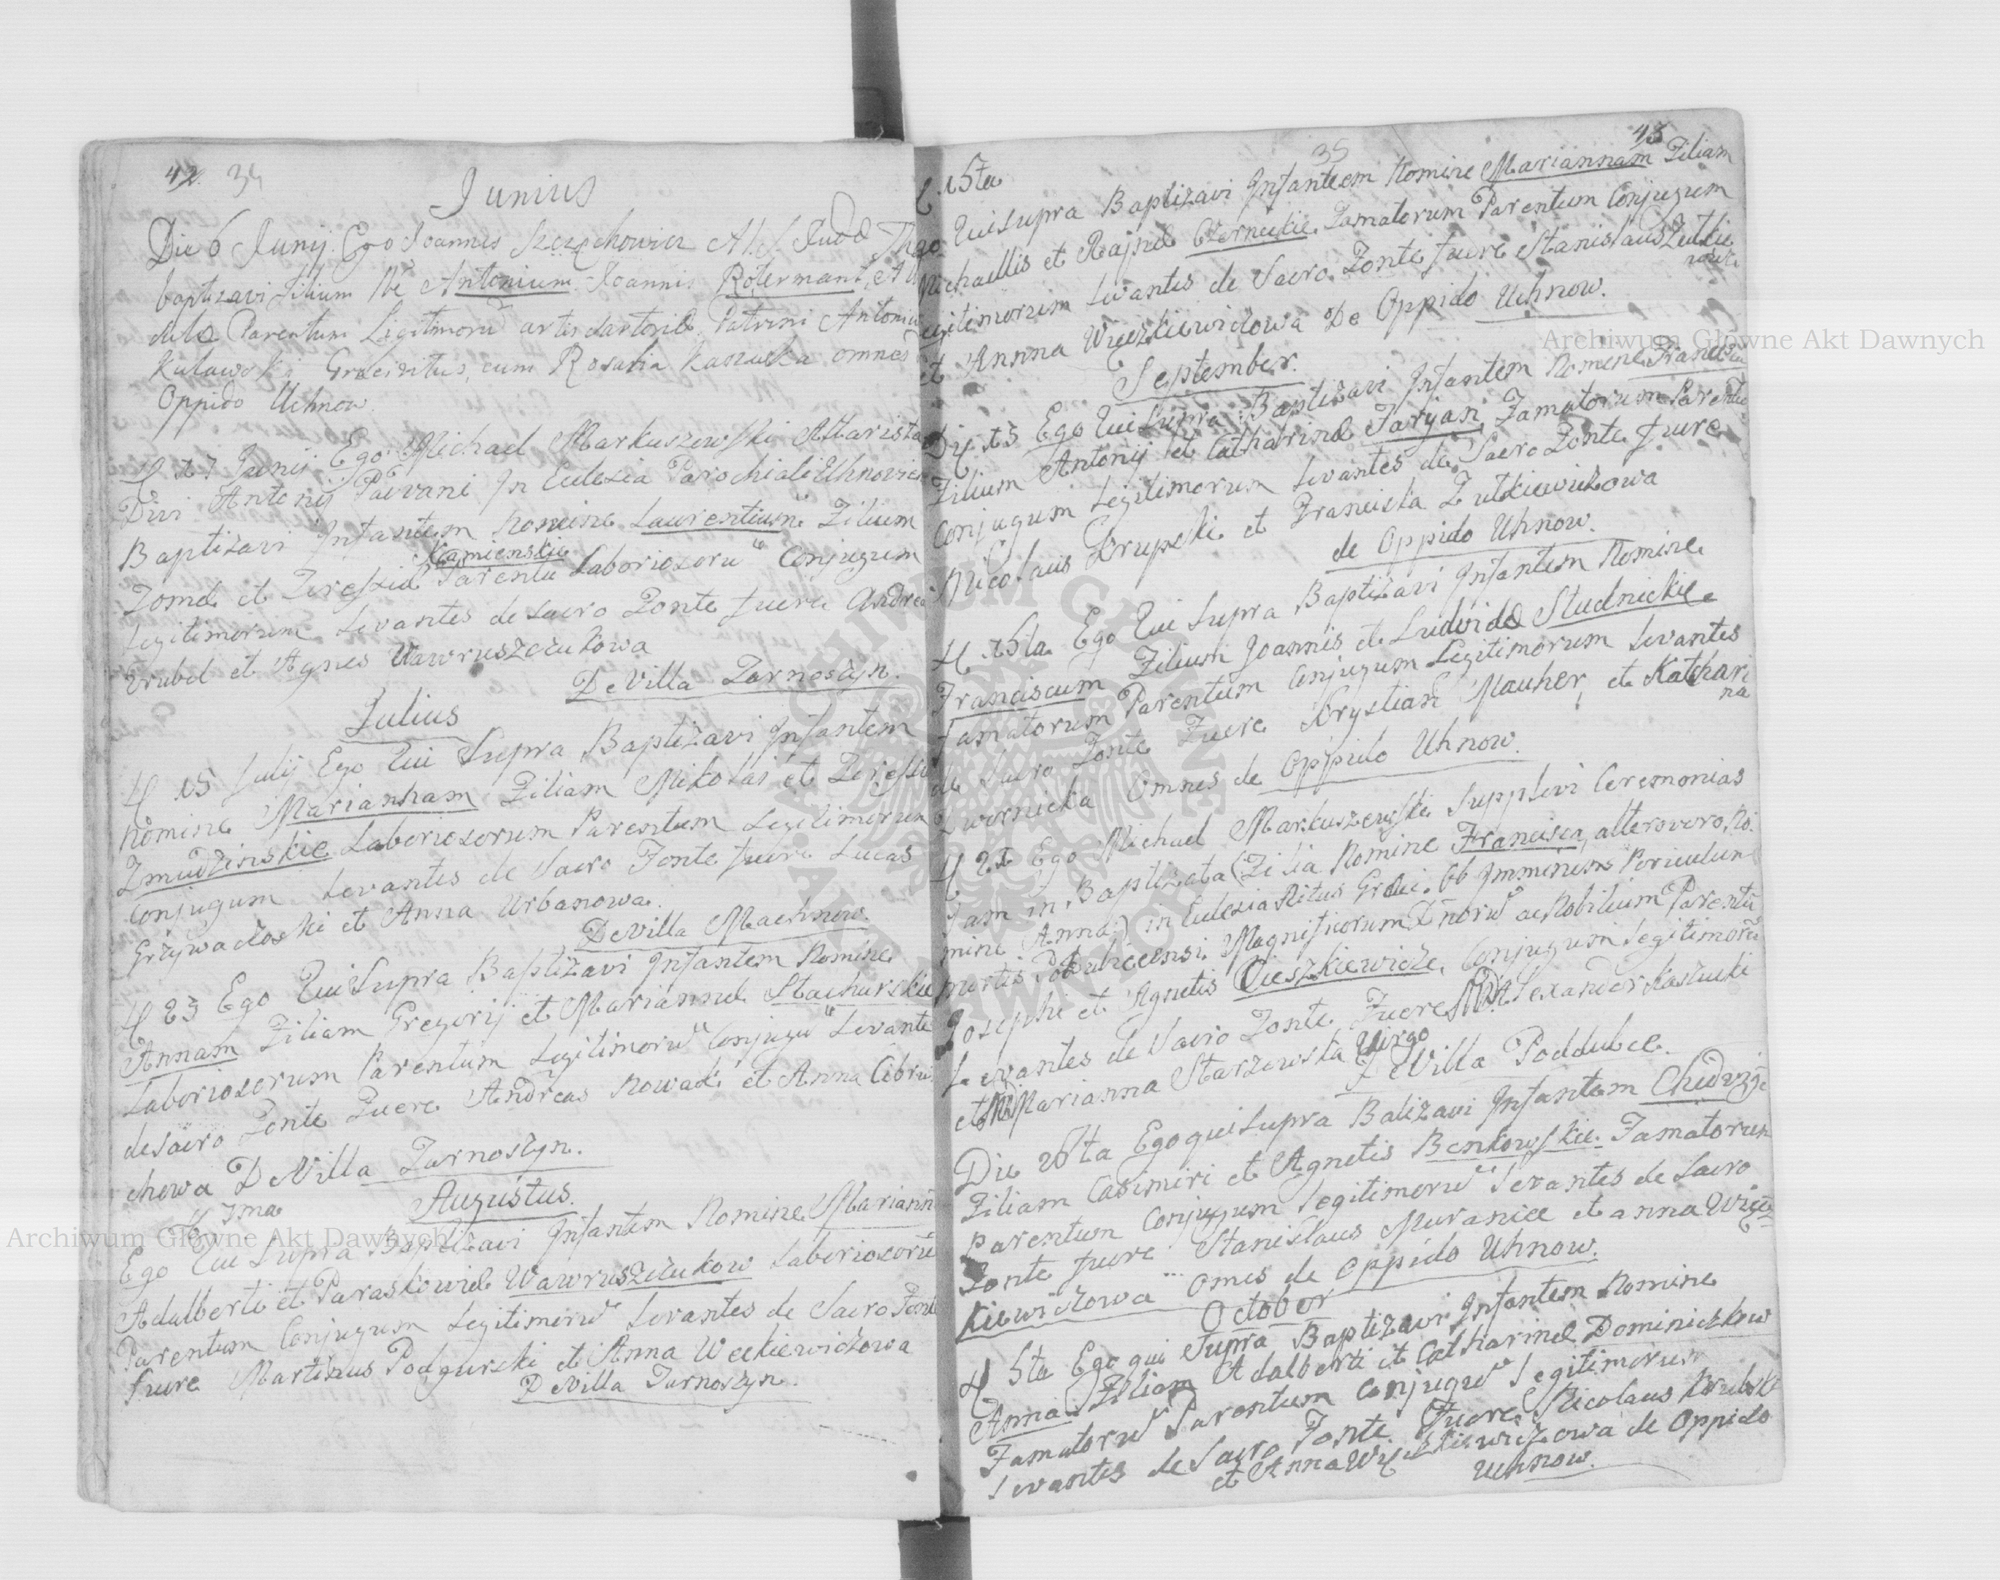 42. 34
Junius
Die 6 Junij Ego Joannes Szczechowicz
baptizavi Filium Antonium Joannis Rotermant et
Parentum Legitimorū artis Sartoriæ Patrini Antonius
Kulawski Græci ritus, cum Rosalia Kaszuska omnes
Oppido Uchnow
17 Junij Ego Michael Markuszewski Altarista
Divi Antonij Padvani In Eclesia Parochiali Uhnovien
Baptizavi Infantem nomine Laurentium Filium
Kamienskie
Tomæ et Teressiæ Parentū Laboriosorū Conjugum
Legitimorum Levantes de sacro Fonte fuere Andreas
Wrubel et Agnes Wawruszczukowa
De Villa Tarnoszyn.
Julius
15 Julij Ego Qui Supra Baptizavi Infantem
Nomine Mariannam Filiam Mikołai et Teressiæ
Zmudzinskie Laboriosorum Parentum Legitimorum
Conjugum Levantes de Sacro Fonte fuere Lucas
Grzywaczoski et Anna Urbanowa.
De Villa Machnow.
23 Ego Qui Supra Baptizavi Infantem Nomine
Annam Filiam Gregorij et Mariannæ Stachurskie
Laboriosorum Parentum Legitimorū Conjugū Levante
de Sacro Fonte Fuere Andreas Nowak et Anna Cibru
chowa De Villa Tarnoszyn.
3ma Augustus.
Ego Qui Supra Baptizavi Infantem Nomine Mariann
Adalberti et Paraskowiæ Wawruszczukow Laboriosorū
Parentum Conjugum Legitimorū Levantes de Sacro Fonte
fuere Martinus Podgurski et Anna Weckiewiczowa
De Villa Tarnoszyn.
35 43
15ta
Qui Supra Baptizavi Infantem Nomine Mariannam Filiam
Michaellis et Czerneckie Famatorum Parentum Conjugum
Legitimorum Levantes de Sacro Fonte fuere Stanislaus Zutkie
nowic
et Annna Więczkiewiczowa De Oppido Uchnow.
September.
Die 13 Ego Qui Supra Baptizavi Infantem Nomine Francis
Filium Antonij et Catharinæ Faryan Famatorum Parentū
Conjugum Legitimorum Levantes de Sacro Fonte fuere
Nicolaus Krupski et Franciska Zutkiewiczowa
de Oppido Uhnow.
15ta Ego Qui Supra Baptizavi Infantem Nomine
Franciscum Filium Joannis et Ludviciæ Studnickie
Famatorum Parentum Conjugum Legitimorum Levantes
de Sacro Fonte Fuere Krystian Mauher, et Kathari
na
Dwornicka Omnes de Oppido Uhnow.
21 Ego Michael Markuszewski Supplevi Ceremonias
Jam in Baptizata (Filia Nomine Francisca, altero vero No-
mine (Anna) in Eclesia Ritus Græci. Ob Imminens Periculum
mortis Poddubecensi Magnificorum Dnorū ac Nobilium Parentū
Josephi et Agnetis Cieszkiewicze, Conjugum Legitimorū
Levantes de Sacro Fonte Fuere MD Alexander Kaszucki
et MD Marianna Starzewska Virgo
De Villa Poddubce.
Die 26ta Ego qui Supra Batizavi Infantem Chedvige
Filiam Casimiri et Agnetis Benkowskie Famatorum
Parentum Conjugum Legitimorū Levantes de Sacro
Fonte fuere Stanislaus Muranice et anna Więcz
Kiewiczowa omes de Oppido Uhnow.
October
5ta Ego qui Supra Baptizavi Infantem Nomine
Anna Filiam Adalberti et Catharinæ Dominiczkow
Famatorū Parentum Conjugū Legitimorum
Levantes de Sacro Fonte Fuere Nicolaus Krubski
et Anna Więczkiewiczowa de Oppido
Uchnow.
Archiwum Główne Akt Dawnych
Archiwum Główne Akt Dawnych
ARCHIWUM GŁÓWNE AKT DAWNYCH